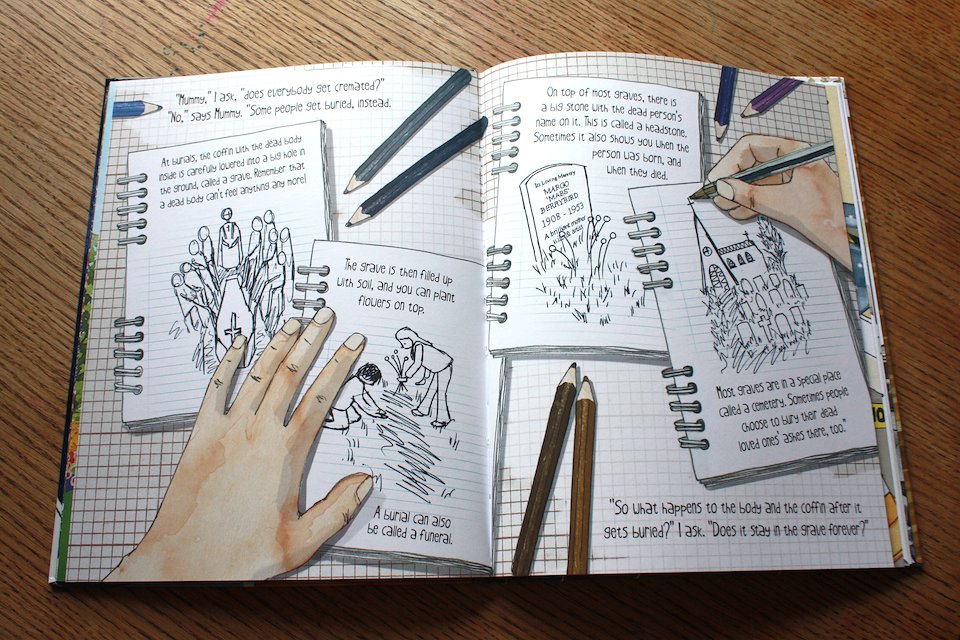 "Mummy," I ask, "does everybody get cremated?"
"No," says Mummy. "Some people get buried, instead.
At burials, the coffin with the dead body
inside is carefully lowered into a big hole in
the ground, called a grave. Remember that
a dead body can't feel anything any more!
The grave is then filled up
with soil, and you can plant
flowers on top.
A burial can also
be called a funeral.
On top of most graves, there is
a big stone with the dead person's
name on it. This is called a headstone.
Sometimes it also shows you when the
person was born, and
when they died.
In Loving Memory
MARGO
"MABS"
BERRYBIRD
1908 - 1953
A brilliant mother
Most graves are in a special place
called a cemetery. Sometimes people
choose to bury their dead
loved ones' ashes there, too."
"So what happens to the body and the coffin after it
gets buried?" I ask. "Does it stay in the grave forever?"